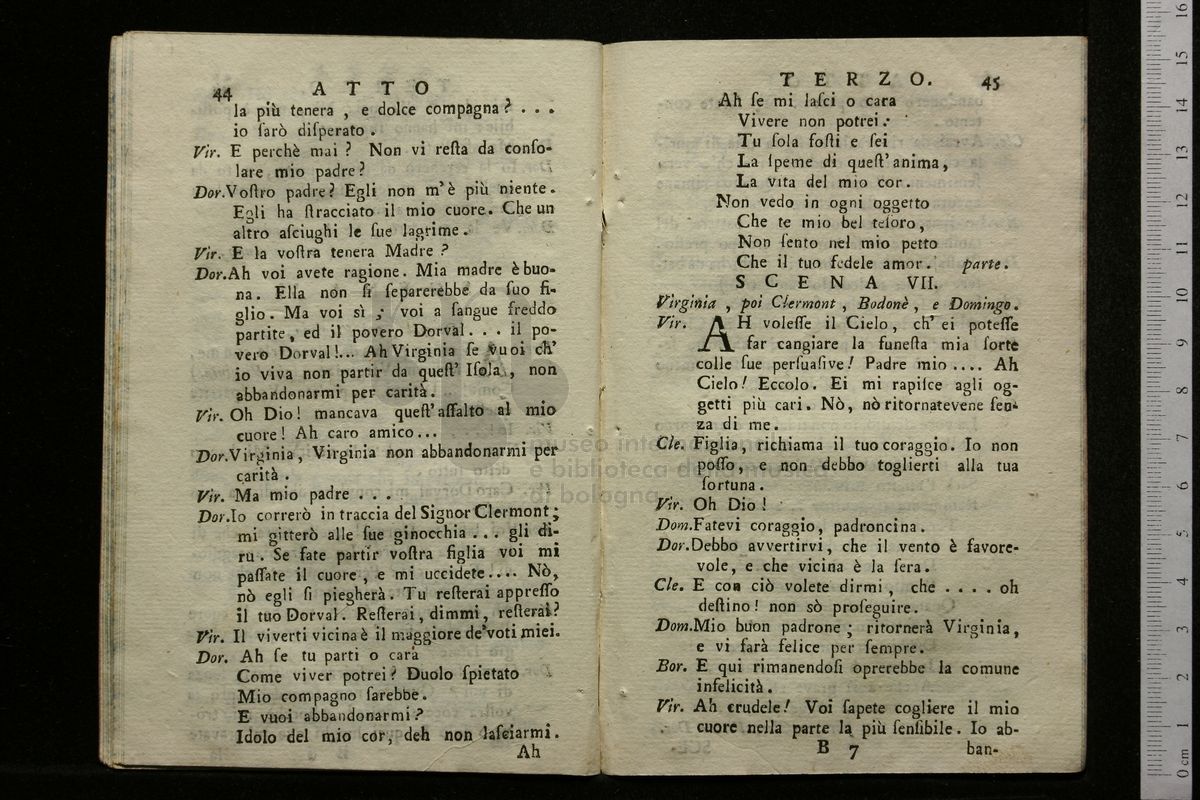 44 ATTO
la più tenera , e dolce compagna? . . .
io ſarò diſperato .
Vir. E perchè mai ? Non vi reſta da conſo-
lare mio padre?
Dor. Voſtro padre? Egli non m'è più niente.
Egli ha ſtracciato il mio cuore. Che un
altro aſciughi le ſue lagrime.
Vir. E la voſtra tenera Madre ?
Dor. Ah voi avete ragione. Mia madre è buo-
na. Ella non ſi ſeparerebbe da ſuo fi-
glio. Ma voi sì ; voi a ſangue freddo
partite, ed il povero Dorval . . . il po-
vero Dorval!... Ah Virginia ſe vuoi ch'
io viva non partir da queſt' Iſola , non
abbandonarmi per carità.
Vir. Oh Dio! mancava queſt'aſſalto al mio
cuore! Ah caro amico...
Dor. Virginia, Virginia non abbandonarmi per
carità .
Vir. Ma mio padre . . .
Dor. Io correrò in traccia del Signor Clermont;
mi gitterò alle ſue ginocchia . . . gli di-
ru . Se fate partir voſtra figlia voi mi
paſſate il cuore , e mi uccidete.... Nò,
nò egli ſi piegherà. Tu reſterai appreſſo
il tuo Dorval. Reſterai, dimmi, reſterai?
Vir. Il viverti vicina è il maggiore de' voti miei.
Dor. Ah ſe tu parti o cara
Come viver potrei? Duolo ſpietato
Mio compagno ſarebbe.
E vuoi abbandonarmi?
Idolo del mio cor, deh non laſciarmi.
Ah
TERZO. 45
Ah ſe mi laſci o cara
Vivere non potrei:
Tu ſola foſti e ſei
La ſpeme di queſt'anima,
La vita del mio cor.
Non vedo in ogni oggetto
Che te mio bel teſoro,
Non ſento nel mio petto
Che il tuo fedele amor. parte.
SCENA VII.
Virginia , poi Clermont , Bodonè , e Domingo.
Vir. AH voleſſe il Cielo, ch' ei poteſſe
far cangiare la funeſta mia ſorte
colle ſue perſuaſive! Padre mio .... Ah
Cielo! Eccolo. Ei mi rapiſce agli og-
getti più cari. Nò, nò ritornatevene ſen-
za di me.
Cle. Figlia, richiama il tuo coraggio. Io non
poſſo, e non debbo toglierti alla tua
fortuna.
Vir. Oh Dio !
Dom. Fatevi coraggio, padroncina.
Dor. Debbo avvertirvi, che il vento è favore-
vole, e che vicina è la ſera.
Cle. E con ciò volete dirmi, che . . . . oh
deſtino! non sò proſeguire.
Dom. Mio buon padrone ; ritornerà Virginia,
e vi farà felice per ſempre.
Bor. E qui rimanendoſi oprerebbe la comune
infelicità.
Vir. Ah crudele! Voi ſapete cogliere il mio
cuore nella parte la più ſenſibile. Io ab-
B 7 ban-
museo internazionale
e biblioteca della musica
di bologna
0 cm 1 2 3 4 5 6 7 8 9 10 11 12 13 14 15 16